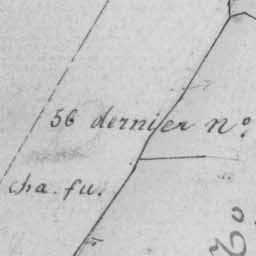 56 dernier n°.
cha. fu.